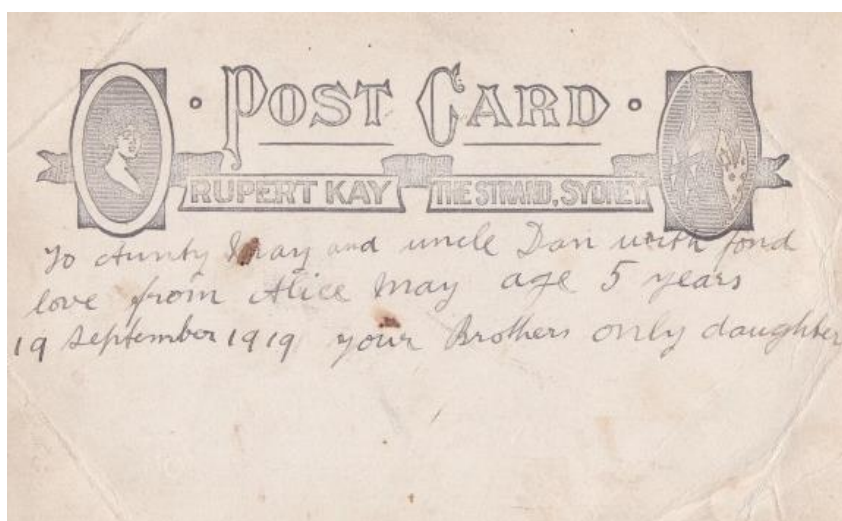 POST CARD
RUPERT KAY THE STRAND, SYDNEY
To Aunty and uncle Dan with fond
love from Alice May age 5 years
19 September 1919 your Brothers only daughter